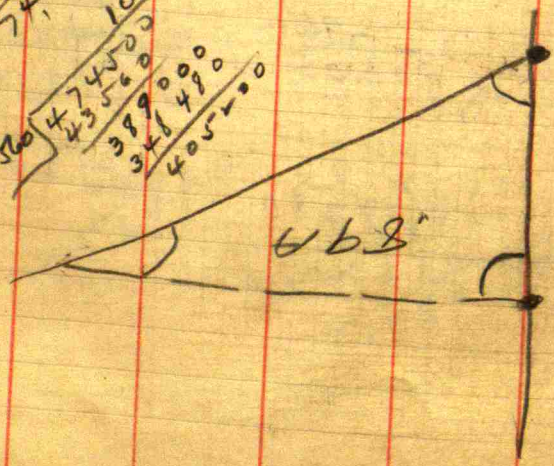 74,
10
560 474500
43560
389000
348480
405200